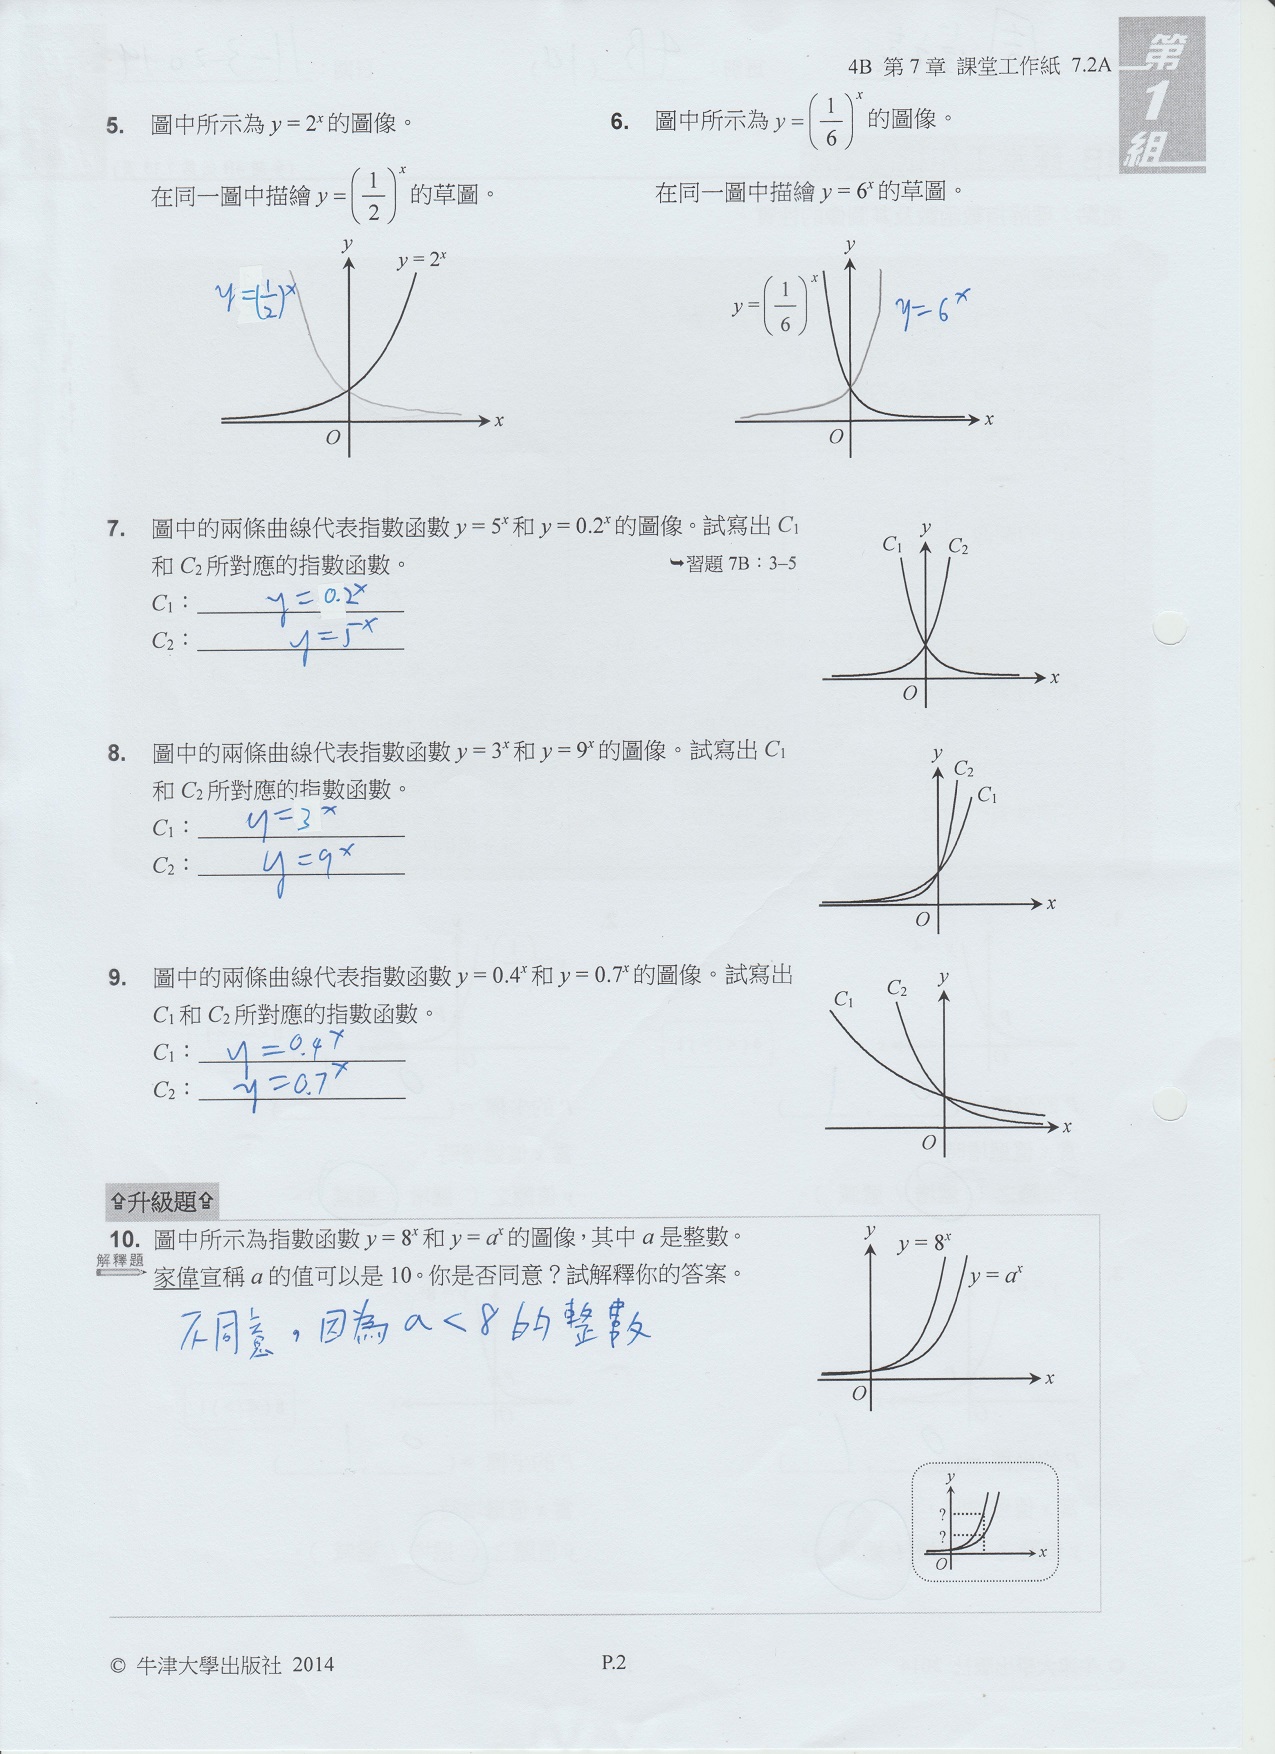 4B 第 7 章 課堂工作紙 7.2A
第
1
組
5. 圖中所示為 y = 2ˣ 的圖像。
在同一圖中描繪 y = (1/2)ˣ 的草圖。
y
y = 2ˣ
y = (1/2)ˣ
x
O
6. 圖中所示為 y = (1/6)ˣ 的圖像。
在同一圖中描繪 y = 6ˣ 的草圖。
y
y = (1/6)ˣ
y = 6ˣ
x
O
7. 圖中的兩條曲線代表指數函數 y = 5ˣ 和 y = 0.2ˣ 的圖像。試寫出 C₁
和 C₂ 所對應的指數函數。
➥習題 7B：3–5
C₁： y = 0.2ˣ
C₂： y = 5ˣ
y
C₁ C₂
x
O
8. 圖中的兩條曲線代表指數函數 y = 3ˣ 和 y = 9ˣ 的圖像。試寫出 C₁
和 C₂ 所對應的指數函數。
C₁： y = 3ˣ
C₂： y = 9ˣ
y
C₂
C₁
x
O
9. 圖中的兩條曲線代表指數函數 y = 0.4ˣ 和 y = 0.7ˣ 的圖像。試寫出
C₁ 和 C₂ 所對應的指數函數。
C₁： y = 0.4ˣ
C₂： y = 0.7ˣ
y
C₁ C₂
x
O
升級題
10. 圖中所示為指數函數 y = 8ˣ 和 y = aˣ 的圖像，其中 a 是整數。
解釋題
家偉宣稱 a 的值可以是 10。你是否同意？試解釋你的答案。
不同意，因為 a < 8 的整數
y
y = 8ˣ
y = aˣ
x
O
y
?
?
x
O
© 牛津大學出版社 2014
P.2